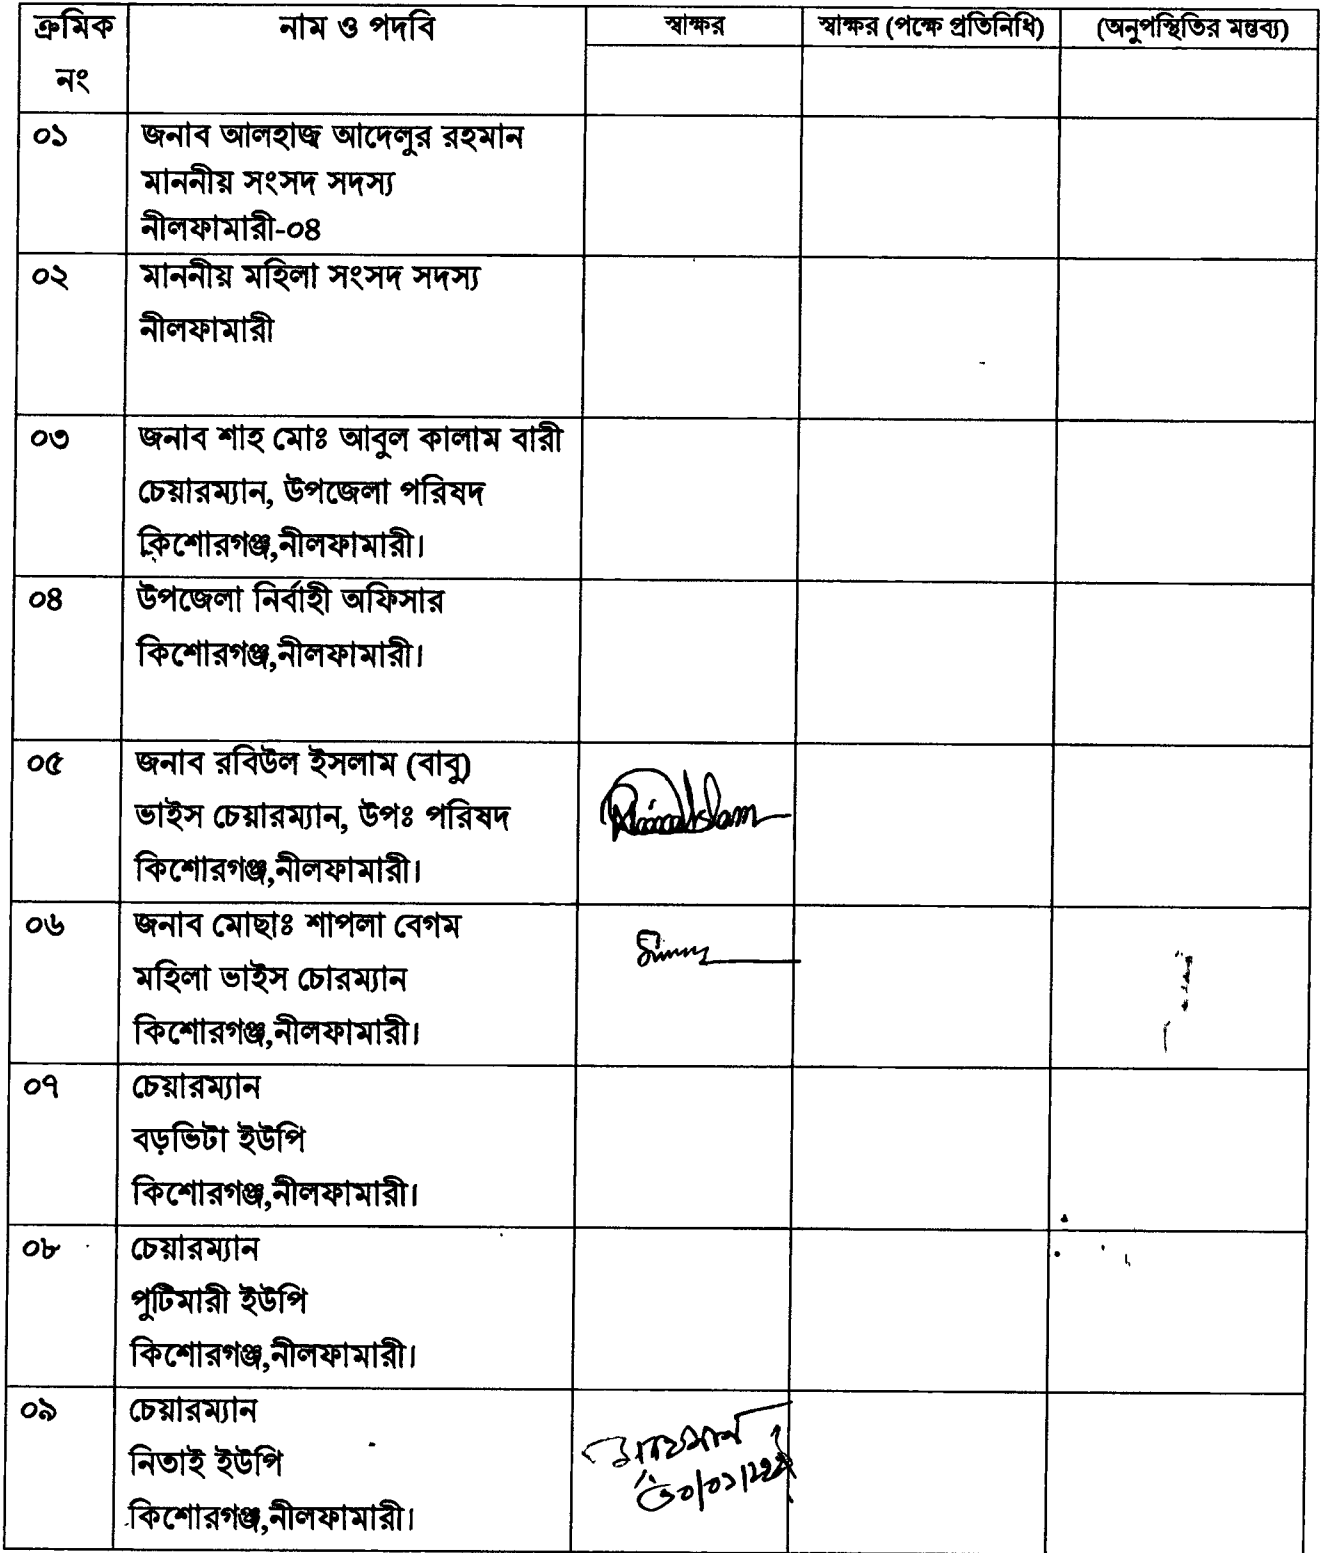 ক্রমিক নং	নাম ও পদবি	স্বাক্ষর	স্বাক্ষর (পক্ষে প্রতিনিধি)	(অনুপস্থিতির মন্তব্য)
০১	জনাব আলহাজ্ব আদেলুর রহমান
মাননীয় সংসদ সদস্য
নীলফামারী-০৪
০২	মাননীয় মহিলা সংসদ সদস্য
নীলফামারী
০৩	জনাব শাহ মোঃ আবুল কালাম বারী
চেয়ারম্যান, উপজেলা পরিষদ
কিশোরগঞ্জ,নীলফামারী।
০৪	উপজেলা নির্বাহী অফিসার
কিশোরগঞ্জ,নীলফামারী।
০৫	জনাব রবিউল ইসলাম (বাবু)
ভাইস চেয়ারম্যান, উপঃ পরিষদ
কিশোরগঞ্জ,নীলফামারী।
০৬	জনাব মোছাঃ শাপলা বেগম
মহিলা ভাইস চোরম্যান
কিশোরগঞ্জ,নীলফামারী।
০৭	চেয়ারম্যান
বড়ভিটা ইউপি
কিশোরগঞ্জ,নীলফামারী।
০৮	চেয়ারম্যান
পুটিমারী ইউপি
কিশোরগঞ্জ,নীলফামারী।
০৯	চেয়ারম্যান
নিতাই ইউপি
কিশোরগঞ্জ,নীলফামারী।